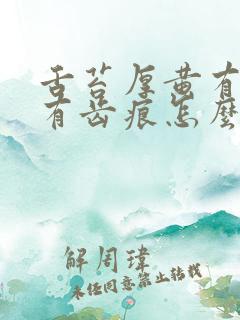 舌苔厚黄有
有齿痕怎么
解周瑋
未经同意禁止转载